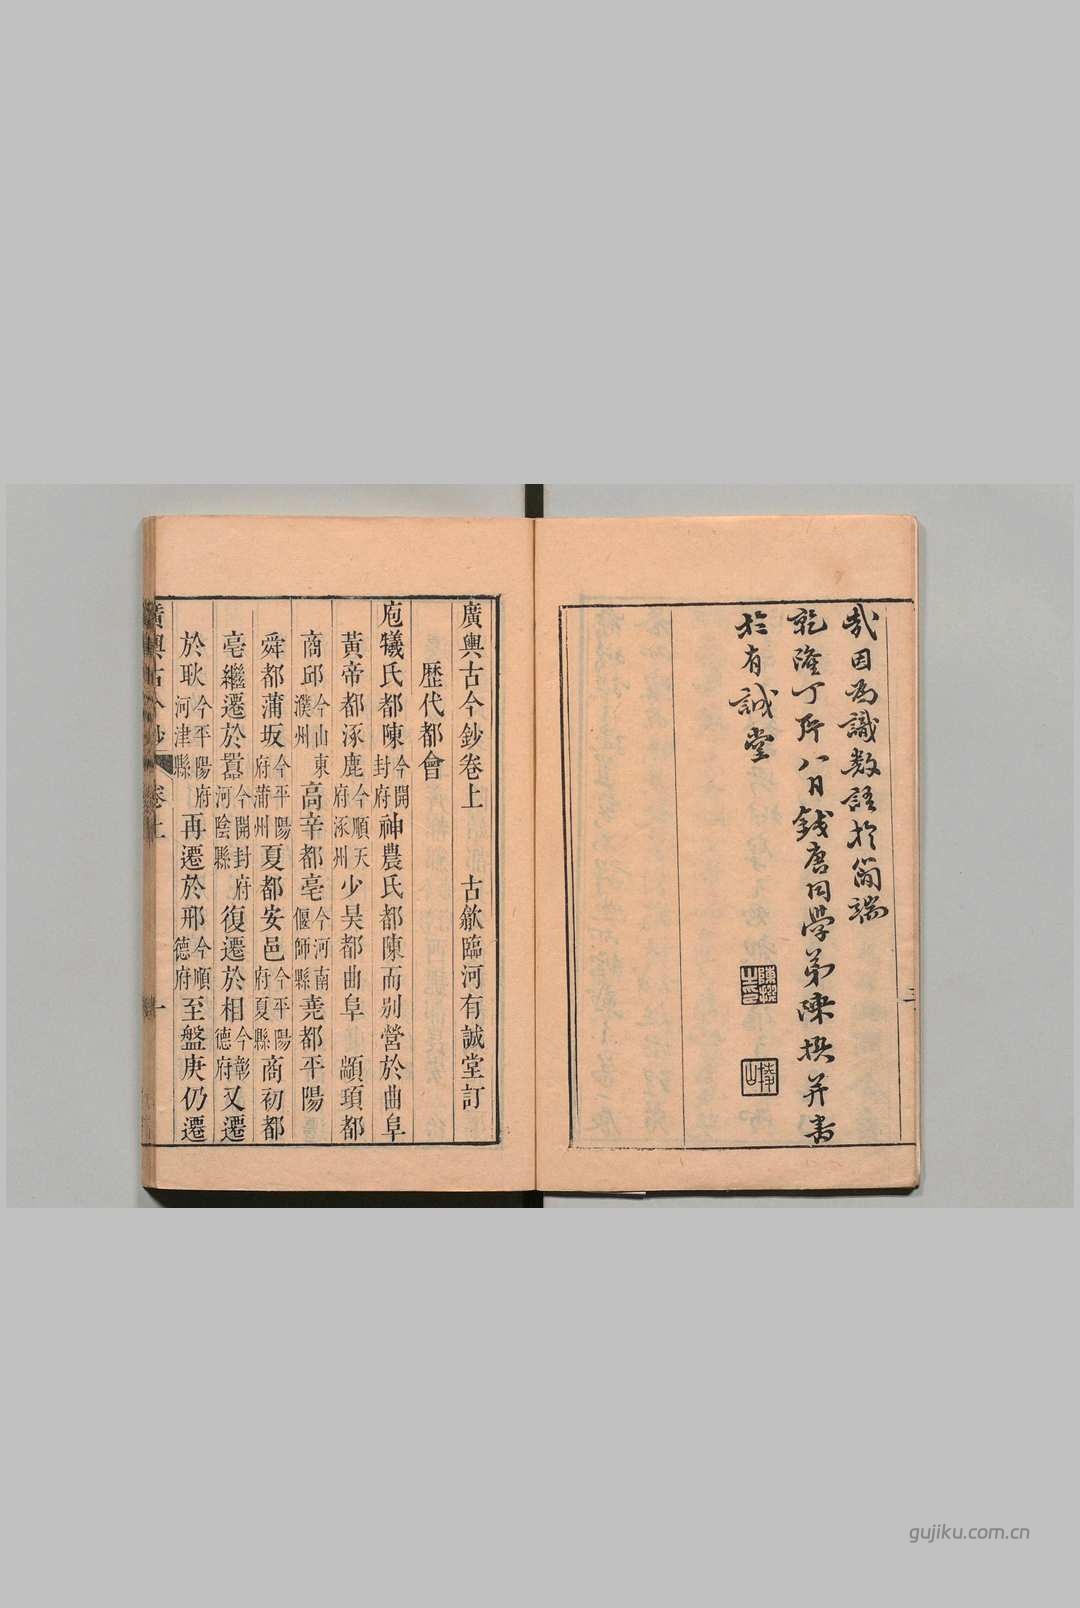 哉因為識數語於簡端
乾隆丁卯八月錢唐同學弟陳撰并書
於有誠堂
三
廣輿古今鈔卷上 古歙臨河有誠堂訂
歷代都會
庖犧氏都陳今開封府神農氏都陳而別營於曲阜
黃帝都涿鹿今順天府涿州少昊都曲阜 顓頊都
商邱今山東濮州高辛都亳今河南偃師縣堯都平陽
舜都蒲坂今平陽府蒲州夏都安邑今平陽府夏縣商初都
亳繼遷於囂今開封府河陰縣復遷於相今彰德府又遷
於耿今平陽府河津縣再遷於邢今順德府至盤庚仍遷
廣輿古今鈔 卷上 一
gujiku.com.cn